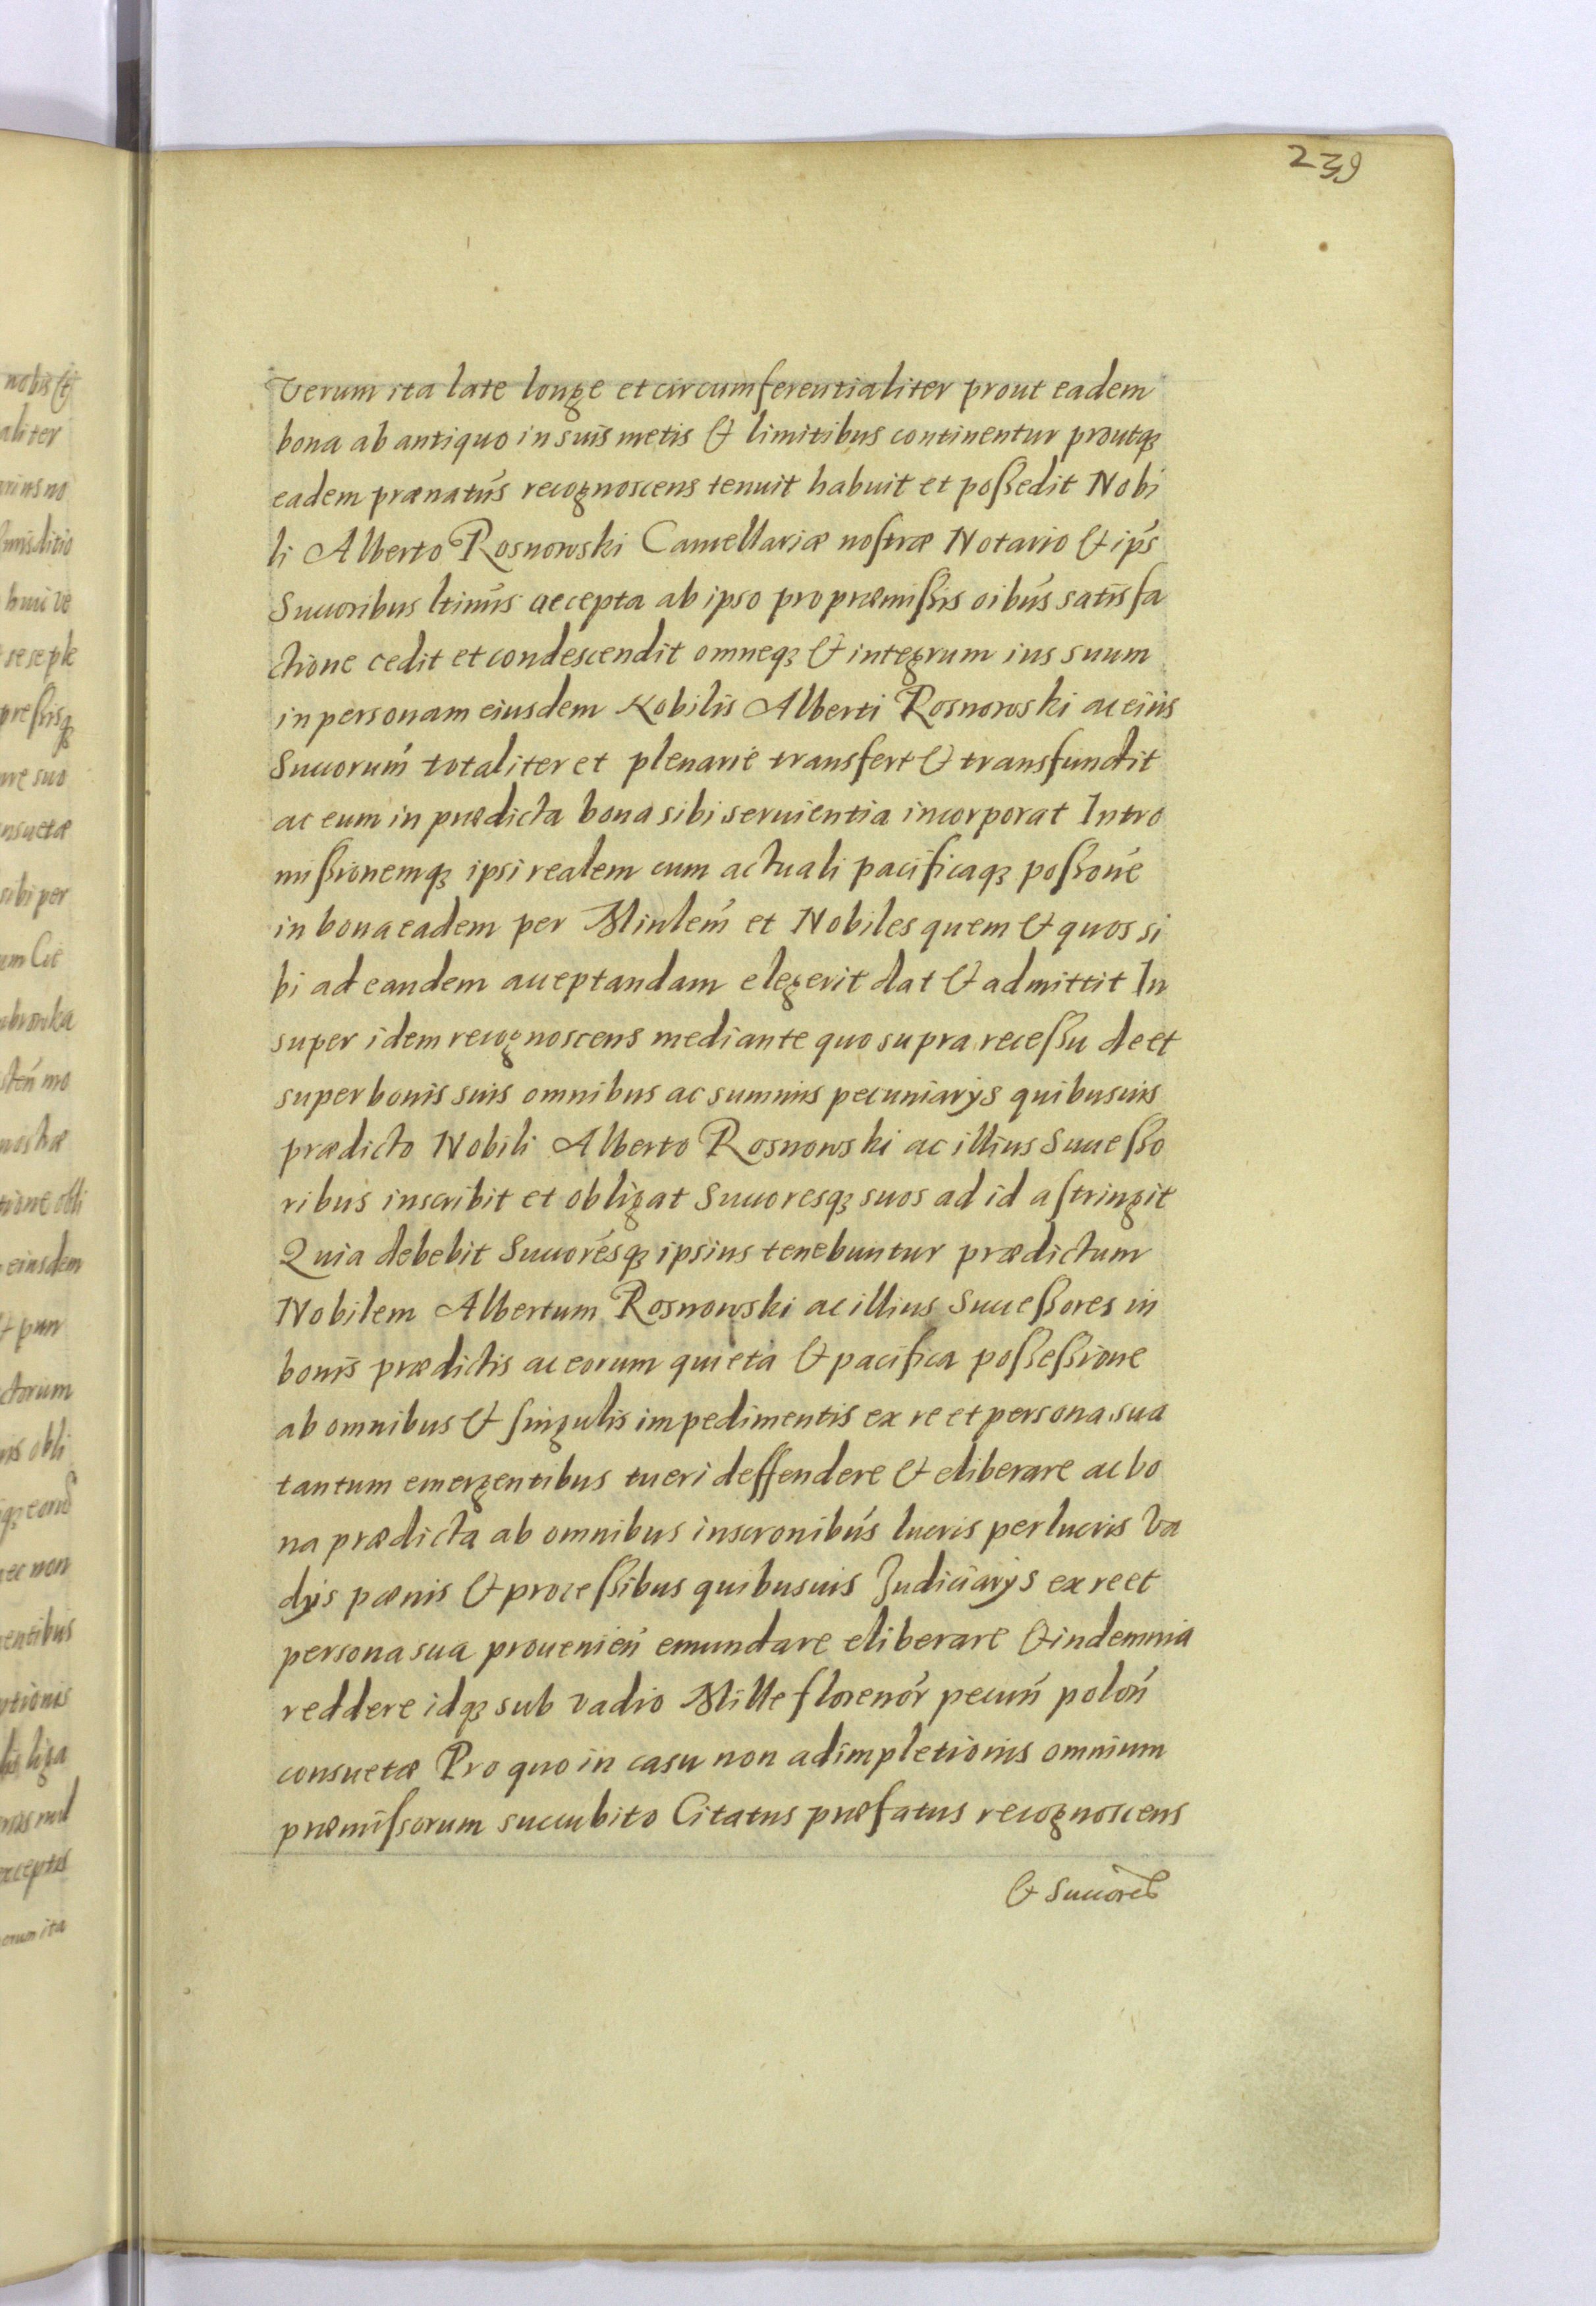 239
Verum ita late longe et circumferentialiter prout eadem
bona ab antiquo in suis metis & limitibus continentur proutqꝫ
eadem prænatús recognoscens tenuit habuit et poßedit Nobi
li Alberto Rosnowski Cancellariæ nostræ Notario & ips̄
Succoribus ltimis accepta ab ipso pro præmißis oibús satisfa
ctione cedit et condescendit omneqꝫ & integrum ius suum
in personam eiusdem Nobilis Alberti Rosnowski ac eius
Succorum̄ totaliter et plenarie transfert & transfundit
ac eum in prædicta bona sibi seruientia incorporat Intro
mißionemqꝫ ipsi realem cum actuali pacificaqꝫ poßoné
in bona eadem per Minlem̄ et Nobiles quem & quos si
bi ad eandem acceptandam elegerit dat & admittit In
super idem recognoscens mediante quo supra receßu de et
super bonis suis omnibus ac summis pecuniarijs quibusuis
prædicto Nobili Alberto Rosnowski ac illius Succeßo
ribus inscribit et obligat Succoresqꝫ suos ad id astringit
Quia debebit Succorésqꝫ ipsius tenebuntur prædictum
Nobilem Albertum Rosnowski ac illius Succeßores in
bonis prædictis ac eorum quieta & pacifica poßeßione
ab omnibus & singulis impedimentis ex re et persona sua
tantum emergentibus tueri deffendere & eliberare ac bo
na prædicta ab omnibus inscronibús lucris perlucris Va
dijs pænis & proceßibus quibusuis Judiciarijs ex re et
persona sua prouenien̄ emundare eliberare & indemnia
reddere idqꝫ sub vadio Mille florenor̄ pecun̄ polon̄
consuetæ Pro quo in casu non adimpletionis omnium
præmissorum succubito Citatus præfatus recognoscens
& Succores